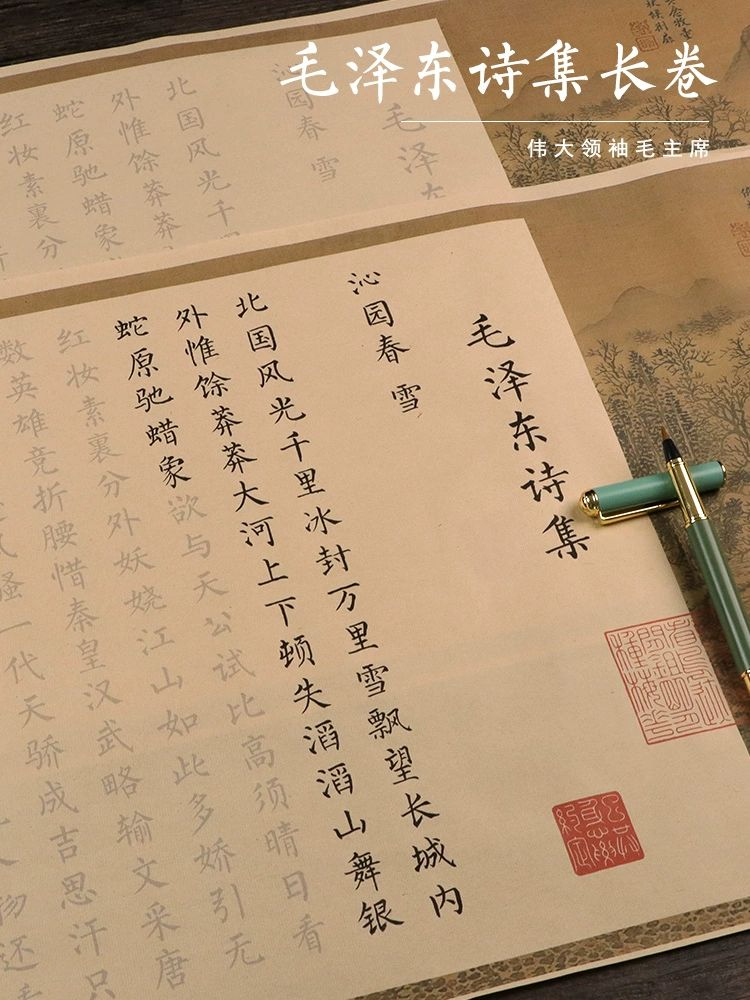 毛泽东诗集长卷
伟大领袖毛主席
毛泽
沁园春 雪
北国风光千
外惟馀莽莽
蛇原驰蜡象
红妆素裹分
毛泽东诗集
沁园春 雪
北国风光千里冰封万里雪飘望长城内
外惟馀莽莽大河上下顿失滔滔山舞银
蛇原驰蜡象欲与天公试比高须晴日看
红妆素裹分外妖娆江山如此多娇引无
数英雄竞折腰惜秦皇汉武略输文采唐
风骚一代天骄成吉思汗只
人物还